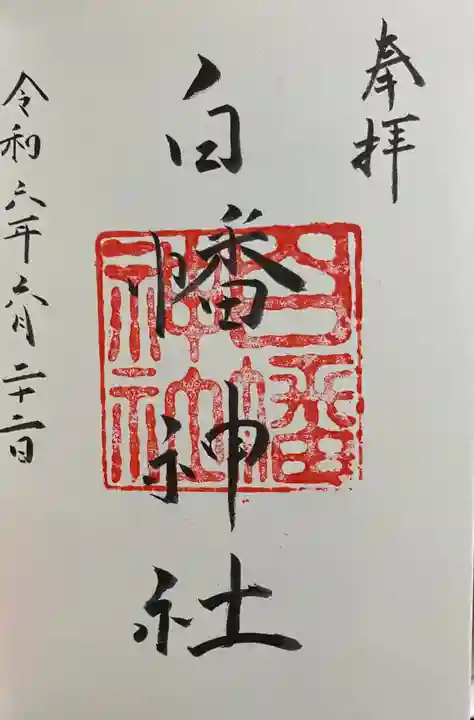 奉拝
白幡神社
白幡
神社
令和六年六月二十二日